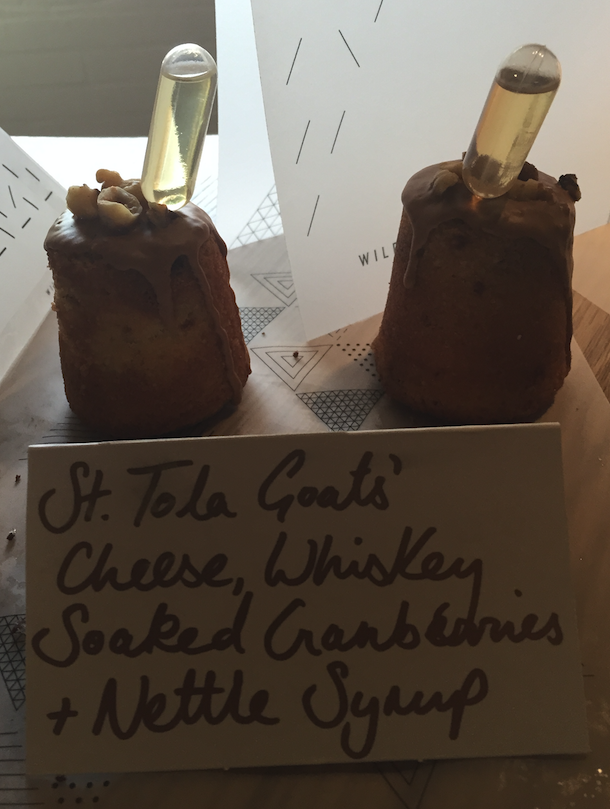 WIL
St. Tola Goats'
Cheese, Whiskey
Soaked Cranberries
+ Nettle Syrup